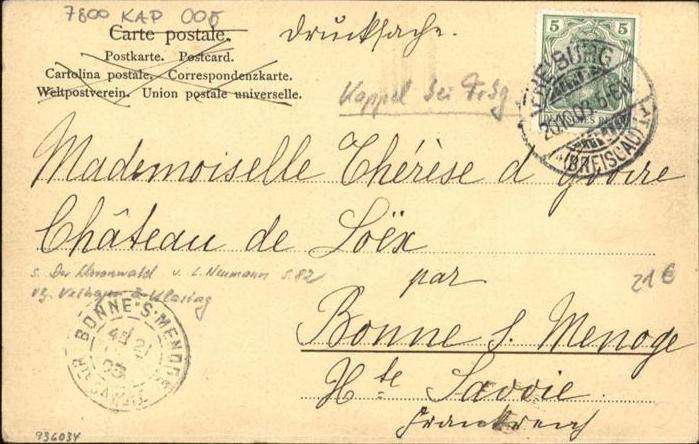 7800 KAP 005
Carte postale.
Postkarte. Postcard.
Cartolina postale. Correspondenzkarte.
Weltpostverein. Union postale universelle.
Drucksache.
5 5
FREIBURG
26.10.03. 5-6 N
(BREISGAU)
Kappel bei Frbg
Mademoiselle Thérèse d
Château de Loëx
s. Der v. L. Neumann S. 82
vg. Velhagen & Klasing
par
21€
Bonne s. Menoge
Hte Savoie.
Frankreich
BONNE-S-MENOGE
936034